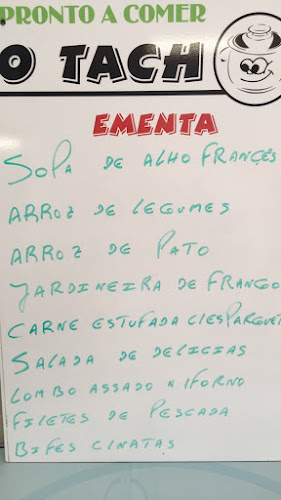 PRONTO A COMER
O TACH
EMENTA
SOPA DE ALHO FRANÇÊS
ARROZ DE LEGUMES
ARROZ DE PATO
JARDINEIRA DE FRANGO
CARNE ESTUFADA C/ESPARGUET
SALADA DE DELICIAS
LOMBO ASSADO N/FORNO
FILETES DE PESCADA
BIFES C/NATAS